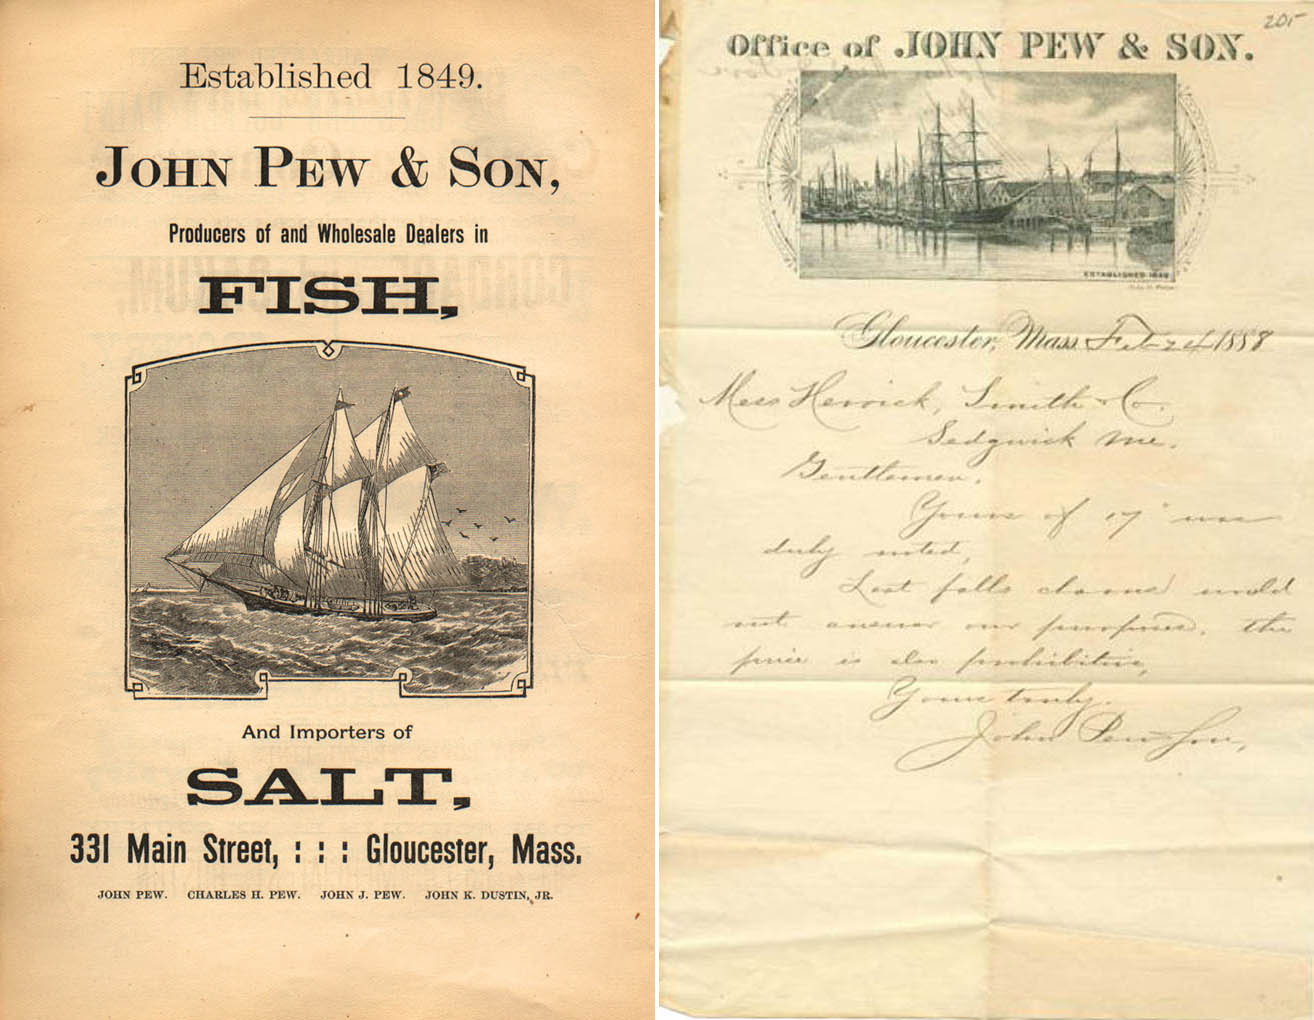 Established 1849.
JOHN PEW & SON,
Producers of and Wholesale Dealers in
FISH,
And Importers of
SALT,
331 Main Street, : : : Gloucester, Mass.
JOHN PEW. CHARLES H. PEW. JOHN J. PEW. JOHN K. DUSTIN, JR.
205
Office of JOHN PEW & SON.
ESTABLISHED 1849
Gloucester, Mass. Feb 24 1888
Mess Herrick, Smith & Co.
Sedgwick Me.
Gentlemen.
Yours of 17" was
duly noted,
Last falls clams would
not answer our purposes, the
price is also prohibitive,
Yours truly.
John Pew & Son,